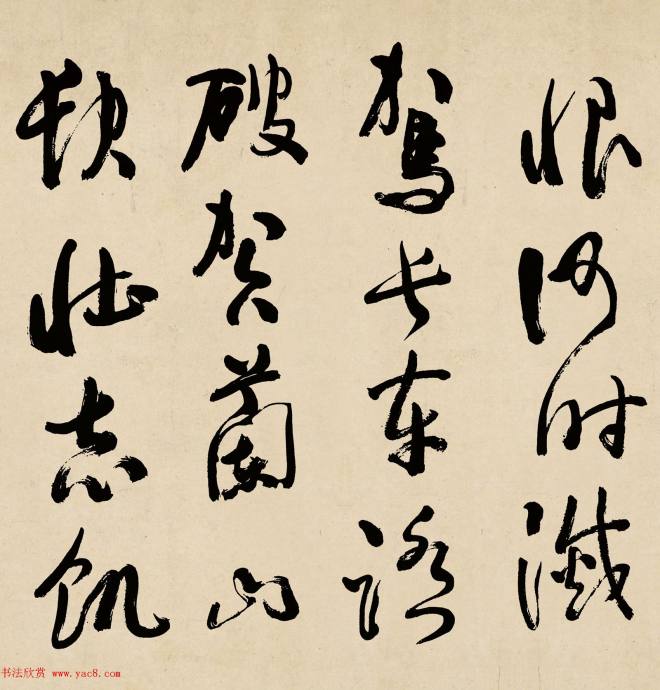 恨何时滅
駕長車踏
破賀蘭山
缺壮志飢
书法欣赏 www.yac8.com